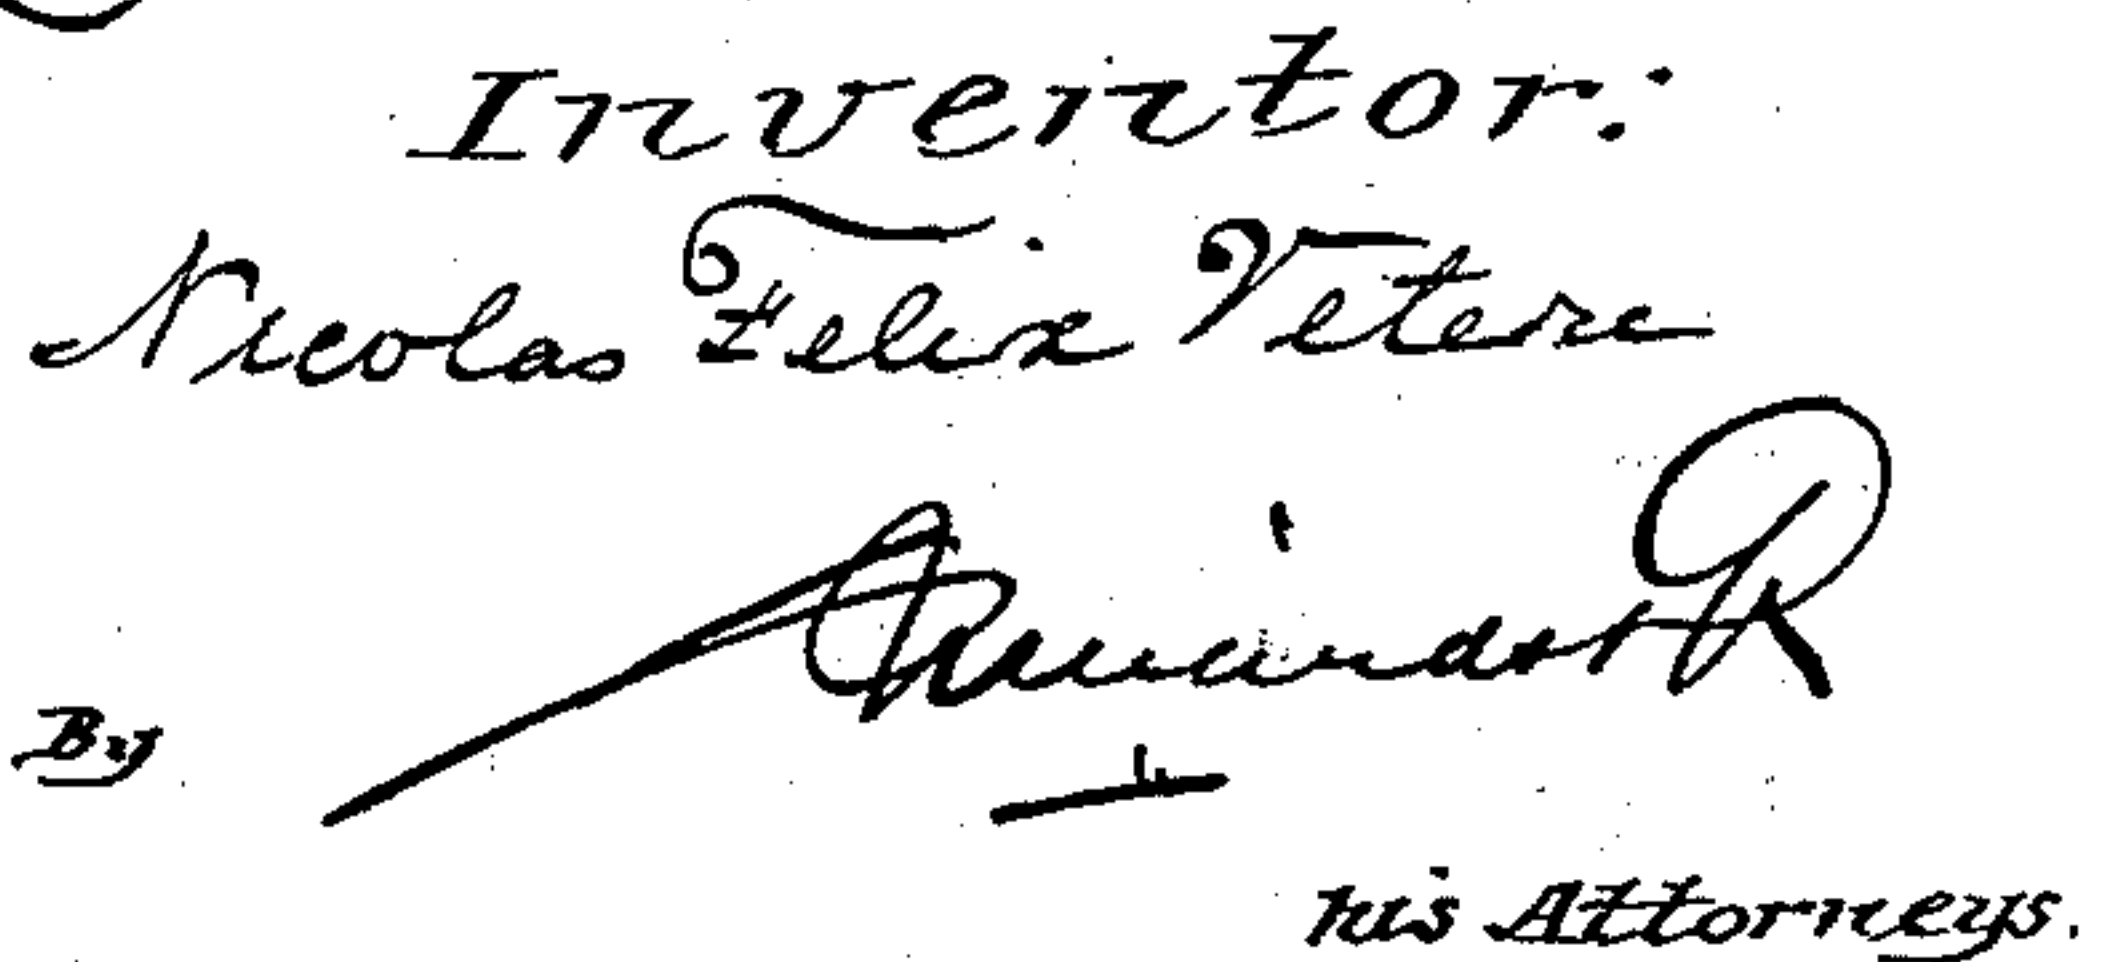 Inventor:
Nicolas Felix Vetere
By
his Attorneys.